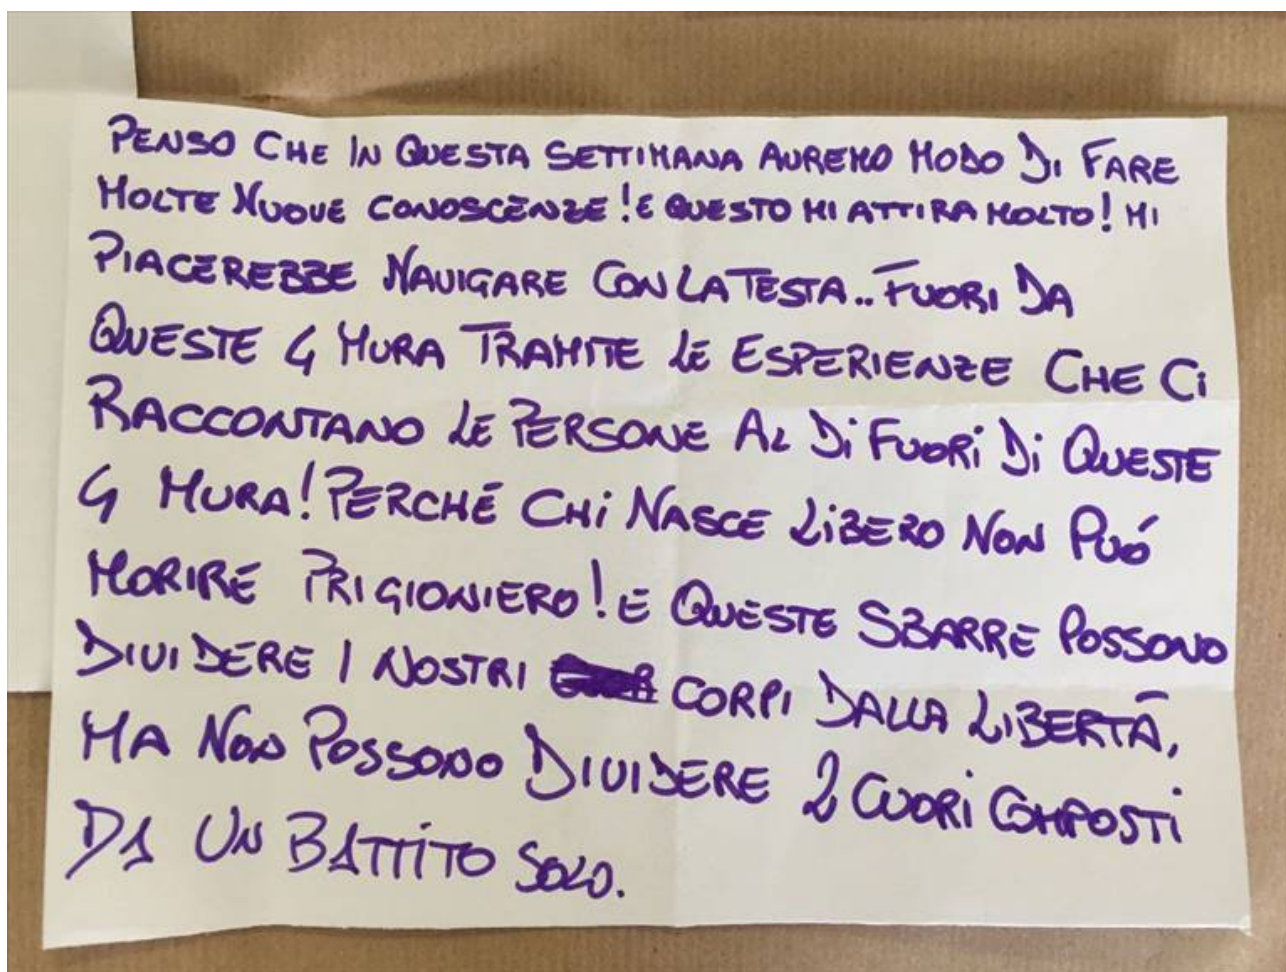 PENSO CHE IN QUESTA SETTIMANA AVREMO MODO DI FARE
MOLTE NUOVE CONOSCENZE! E QUESTO MI ATTIRA MOLTO! MI
PIACEREBBE NAVIGARE CON LA TESTA.. FUORI DA
QUESTE 4 MURA TRAMITE LE ESPERIENZE CHE CI
RACCONTANO LE PERSONE AL DI FUORI DI QUESTE
4 MURA! PERCHÉ CHI NASCE LIBERO NON PUÓ
MORIRE PRIGIONIERO! E QUESTE SBARRE POSSONO
DIVIDERE I NOSTRI CORPI DALLA LIBERTÀ,
MA NON POSSONO DIVIDERE 2 CUORI COMPOSTI
DA UN BATTITO SOLO.